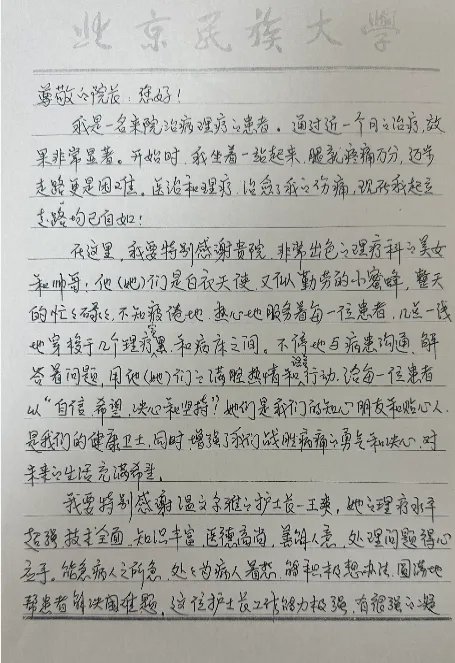 北京民族大学
尊敬的院长：您好！
我是一名来院治病理疗的患者。通过近一个月的治疗，效
果非常显著。开始时，我坐着一站起来，腿就疼痛万分，迈步
走路更是困难。医治和理疗，治愈了我的伤痛，现在我起立
走路均已自如！
在这里，我要特别感谢贵院，非常出色的理疗科的美女
和帅哥：他（她）们是白衣天使，又似勤劳的小蜜蜂，整天
的忙忙碌碌，不知疲倦地热心地服务着每一位患者，几点一线
地穿梭于几个理疗室和病床之间。不停地与病患沟通，解
答着问题，用他（她）们的满腔热情和行动，给每一位患者
以“自信、希望、决心和坚持”？她们是我们的知心朋友和贴心人
是我们的健康卫士，同时，增强了我们战胜病痛的勇气和决心，对
未来的生活充满希望。
我要特别感谢温文尔雅的护士长—王爽，她的理疗水平
超强技术全面，知识丰富，医德高尚，善解人意，处理问题得心
应手。能急病人之所急，处处为病人着想，能积极想办法，圆满地
帮患者解决困难题，这位护士长工作能力极强，有很强的凝